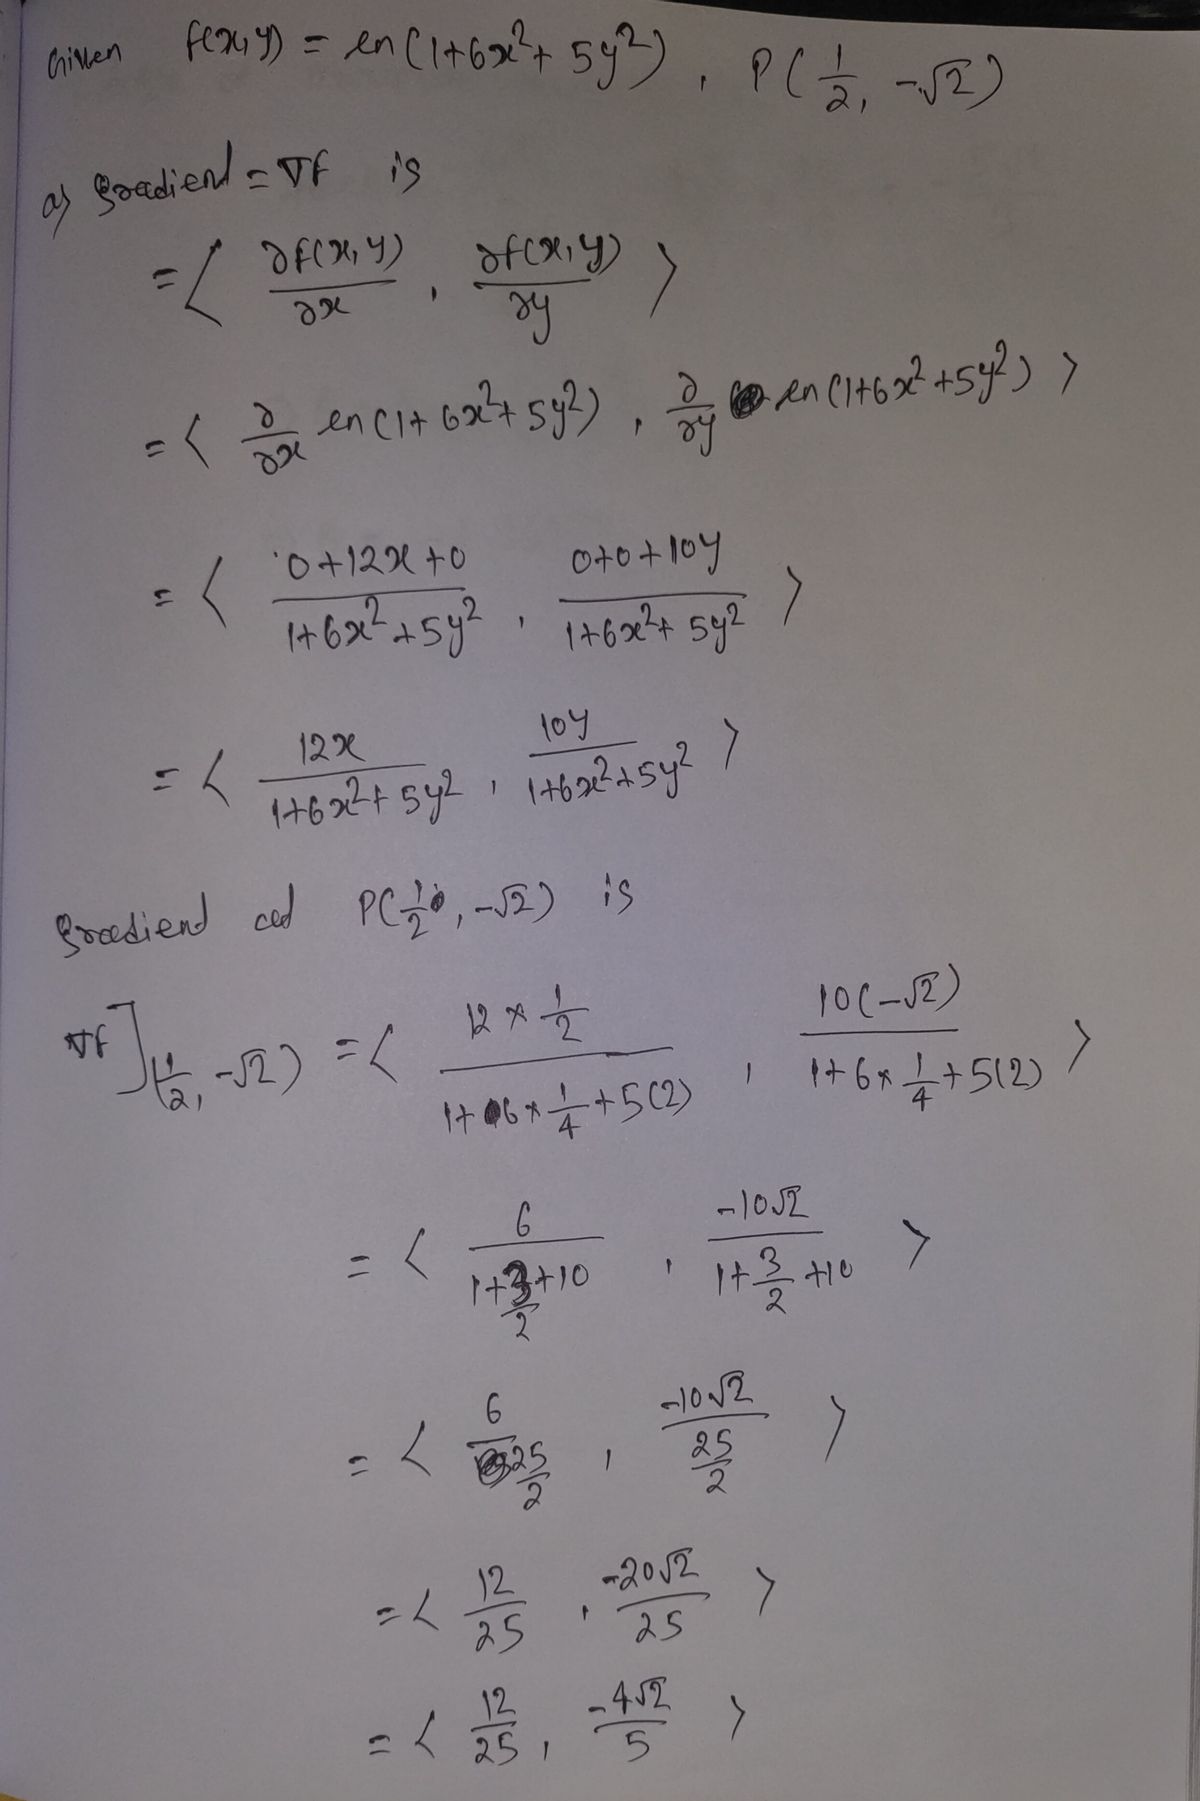 Given f(x,y) = ln(1+6x²+5y²), P(1/2, -√2)
a) Gradient = ∇f is
= < ∂f(x,y)/∂x , ∂f(x,y)/∂y >
= < ∂/∂x ln(1+6x²+5y²), ∂/∂y ln(1+6x²+5y²) >
= < (0+12x+0)/(1+6x²+5y²) , (0+0+10y)/(1+6x²+5y²) >
= < 12x/(1+6x²+5y²) , 10y/(1+6x²+5y²) >
Gradient at P(1/2, -√2) is
∇f](1/2, -√2) = < (12×1/2)/(1+6×1/4+5(2)) , 10(-√2)/(1+6×1/4+5(2)) >
= < 6/(1+3/2+10) , -10√2/(1+3/2+10) >
= < 6/(25/2) , -10√2/(25/2) >
= < 12/25 , -20√2/25 >
= < 12/25 , -4√2/5 >